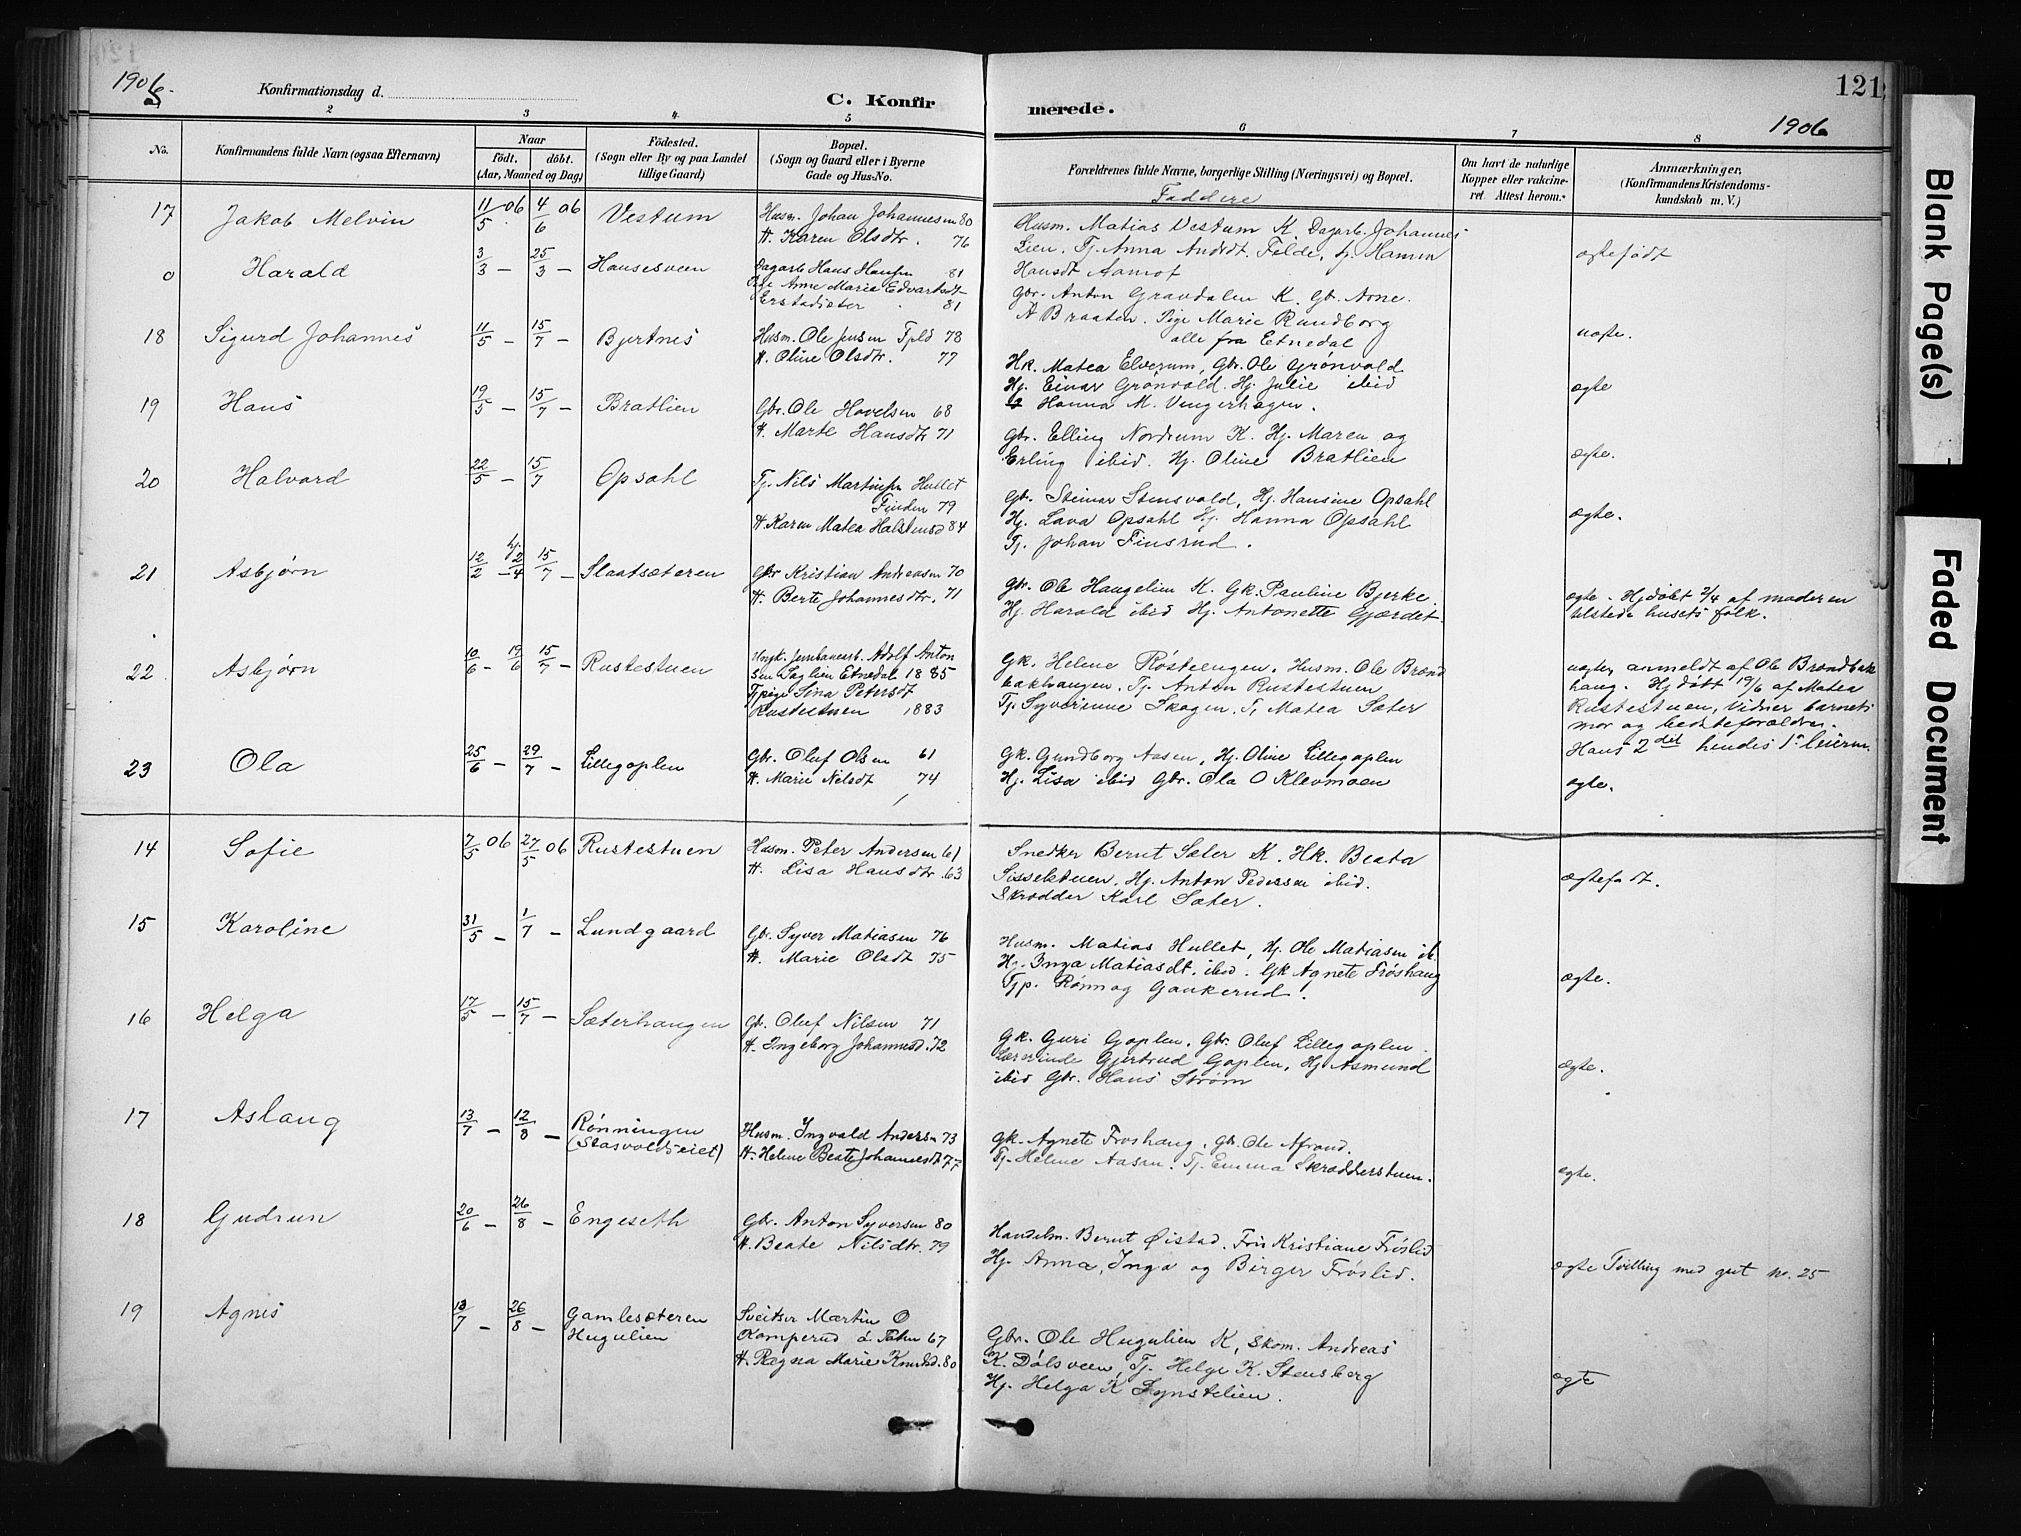 1906.
Konfirmationsdag d.
C. Konfir
merede.
121
1906
2
3
4
5
6
7
8
No.
Konfirmandens fulde Navn (ogsaa Efternavn)
Naar
født. døbt.
(Aar, Maaned og Dag)
Fødested.
(Sogn eller By og paa Landet
tillige Gaard)
Bopæl.
(Sogn og Gaard eller i Byerne
Gade og Hus-No.
Forældrenes fulde Navne, borgerlige Stilling (Næringsvei) og Bopæl.
Faddere
Om havt de naturlige
Kopper eller vakcine-
ret Attest herom.
Anmærkninger.
(Konfirmandens Kristendoms-
kundskab m. V.)
17 Jakob Melvin 11/5 06 4/6 06 Vestum Husm. Johan Johannesen 80
H. Karen Olsdtr. 76
Husm. Matias Vestum K. Dagarb. Johannes
Lien. Tj. Anna Andrdt. Felde, Hj. Hanna
Hansdt Aamot
ægtefødt
0 Harald 3/3 – 25/3 – Hansesveen Dagarb Hans Hansen 81
Pige Anne Marie Edvartsdt
81
Gbr. Anton Gravdalen K. Gb. Arne.
A Braaten. Pige Marie Rundborg
alle fra Etnedal
uægte.
18 Sigurd Johannes 11/5 – 15/7 – Bjertnes Husm. Ole Jensen 78
H. Oline Olsdtr. 77
Hk. Matea Elverum, Gbr. Ole Grønvold
Hj. Einar Grønvold. Hj. Julie ibid
Hanna M. Vengerhagen.
ægte
19 Hans 19/5 – 15/7 – Bratlien Gbr. Ole Hovelsen 68
H. Marte Hansdtr 71
Gbr. Elling Nordrum K. Hj. Maren og
Erling ibid. Hj. Oline Bratlien
ægte.
20 Halvard 22/5 – 15/7 Opsahl Tj. Nils Martinsen Hullet
79
H. Karen Matea Halstensd 84
Gb. Steinar Stensvold, Hj. Hansine Opsahl
Hj. Lava Opsahl Hj. Hanna Opsahl
Tj. Johan Finsrud.
ægte.
21 Asbjørn 12/2 – hj. 2/4 15/7 – Slaatsæteren Gbr Kristian Andreasen 70
H. Berte Johannesdtr. 71
Gbr. Ole Haugelien K. Gk. Pauline Bjerke
Hj. Harald ibid Hj. Antonette Gjærdet.
ægte. Hjdøbt 2/4 af moderen
tilstede husets folk.
22 Asbjørn 10/6 – 19/6 15/7 – Rustestuen Ungk. Jernbanearb. Adolf Anton
sen Etnedal 1885
Tjpige Sina Petersdt
Rustestuen 1883
Gk. Helene Røstelengen. Husm. Ole Brænd
bakhaugen. Tj. Anton Rustestuen
Tj. Syverinne Skogen. Tj Matea Sæter
uægte, anmeldt af Ole Brændbak
haug. Hjdøbt 19/6 af Matea
Rustestuen, Vidner barnets
mor og bedsteforældre.
Hans 2det hendes 1ste leierm.
23 Ola 25/6 – 29/7 – Lillegoplen Gbr. Oluf Olsen 61
H. Marie Nilsdt 74
Gk. Gundborg Aasen, Hj. Oline Lillegoplen
Hj. Lisa ibid Gbr. Ola O Klevmoen
ægte.
14 Sofie 7/5 06 27/5 06 Rustestuen Husm. Peter Andersen 61
H. Lisa Hansdtr. 63
Snedker Bernt Sæter K. Hk. Beata
Sissestuen. Hj. Anton Pedersen ibid.
Skrædder Karl Sæter.
ægtefødt.
15 Karoline 31/5 – 1/7 – Lundgaard Gbr. Syver Matiasen 76
H. Marie Olsdt 75
Husm. Matias Hullet, Hj. Ole Matiasen ib.
Hj. Inga Matiasdt. ibid. Gk Agnete Frøshaug
Tjp. Rønnog Gaukerud.
ægte.
16 Helga 17/5 – 15/7 – Sæterhaugen Gb. Oluf Nilsen 71
H. Ingeborg Johannesd. 72
Gk. Guri Goplen. Gbr. Oluf Lillegoplen
Lærerinde Gjertrud Goplen, Hj Asmund
ibid Gbr. Hans Strøm
ægte.
17 Aslaug 13/7 – 12/8 – Rønningen
(Stasvoldseiet)
Husm. Ingvald Andersen 73
H. Helene Beate Johannesdt 77
Gk. Agnete Froshaug, Gb. Ole Afrand.
Tj. Helene Aasen. Tj. Emma Skrædderstuen.
ægte.
18 Gudrun 20/6 – 26/8 – Engeseth Gbr. Anton Syversen 80
H. Beate Nilsdtr. 79
Handelm. Bernt Øistad. Fru Kristiane Frøslid
Hj. Anna, Inga og Birger Frøslid.
ægte Tvilling med gut no. 25
19 Agnes 13/7 – 26/8 – Gamlesæteren
Hugulien
Sveitser Martin O
Kamperud 67
H. Ragna Marie Knudsd. 80
Gbr. Ole Hugulien K, Skom. Andreas
K. Dølsveen, Tj. Helge K. Stensberg
Hj. Helga K Synstelien.
ægte
Blank Page(s)
Faded Document